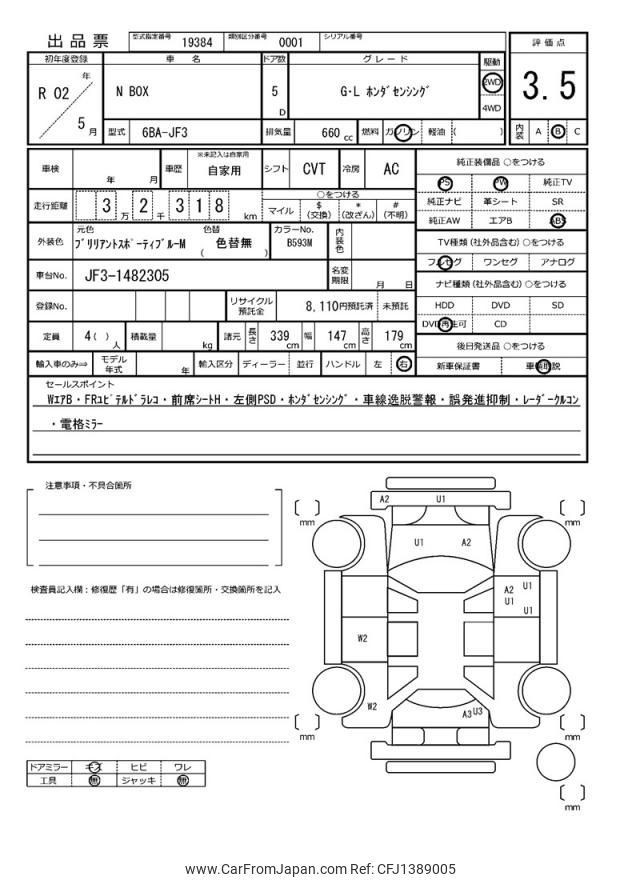 出品票 型式指定番号 19384 類別区分番号 0001 シリアル番号
評価点
3.5
内装 A B C
初年度登録 車名 ドア数 グレード 駆動
R 02 年 5 月 N BOX 5 D G・L ホンダセンシング 2WD 4WD
型式 6BA-JF3 排気量 660 cc 燃料 ガソリン 軽油 ( )
車検 年 月 車歴 ※未記入は自家用 自家用 シフト CVT 冷房 AC
走行距離 3 万 2 千 3 1 8 km ○をつける
マイル $ (交換) * (改ざん) # (不明)
外装色 元色 ブリリアントスポーティブルーM 色替 ( 色替無 ) カラーNo. B593M 内装色
車台No. JF3-1482305 名変期限 月 日
登録No. リサイクル預託金 8,110円預託済 未預託
定員 4 ( ) 人 積載量 kg 諸元 長さ 339 cm 幅 147 cm 高さ 179 cm
輸入車のみ⇒ モデル年式 年 輸入区分 ディーラー 並行 ハンドル 左 右
純正装備品 ○をつける
PS PW 純正TV
純正ナビ 革シート SR
純正AW エアB ABS
TV種類 (社外品含む) ○をつける
フルセグ ワンセグ アナログ
ナビ種類 (社外品含む) ○をつける
HDD DVD SD
DVD再生可 CD
後日発送品 ○をつける
新車保証書 車輌取説
セールスポイント
WエアB・FRユピテルドラレコ・前席シートH・左側PSD・ホンダセンシング・車線逸脱警報・誤発進抑制・レーダークルコン
・電格ミラー
注意事項・不具合箇所
検査員記入欄：修復歴「有」の場合は修復箇所・交換箇所を記入
ドアミラー キズ ヒビ ワレ
工具 無 ジャッキ 無
A2 U1
mm mm
U1 A2
A2 U1
U1 U1
W2
W2
A3 U3
mm mm
mm
www.CarFromJapan.com Ref: CFJ1389005